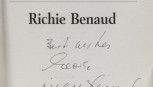 Richie Benaud
Best wishes
George